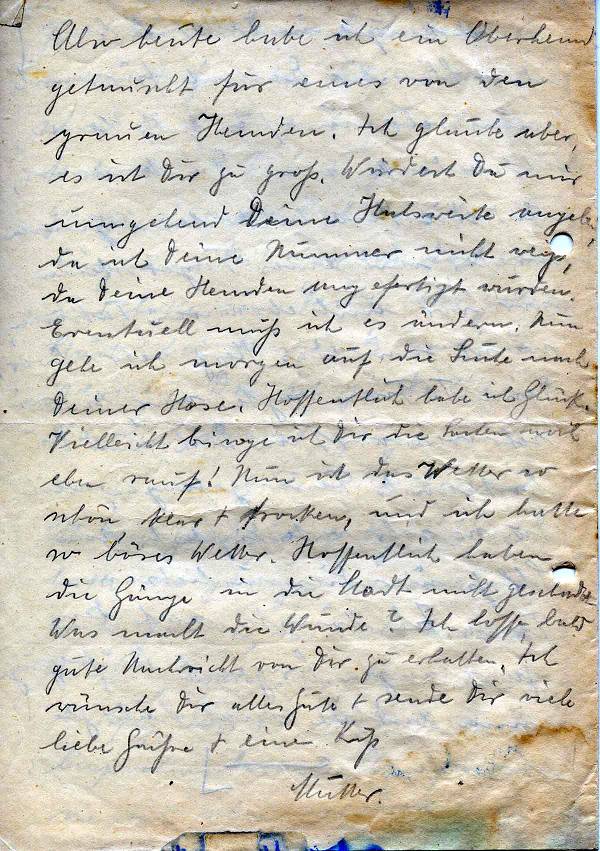 Also heute habe ich ein Oberhemd
getauscht für eines von den
grauen Hemden. Ich glaube aber,
es ist Dir zu groß. Würdest Du mir
umgehend Deine Halsweite angeben,
da ich Deine Nummer nicht weiß,
da Deine Hemden angefertigt wurden.
Eventuell muß ich es ändern. Nun
gehe ich morgen auf die Suche nach
Deiner Hose. Hoffentlich habe ich Glück.
Vielleicht bringe ich Dir die Sachen noch
eben rauf! Nun ist das Wetter so
schön klar + trocken, und ich hatte
so böses Wetter. Hoffentlich haben
die Gänge in die Stadt nicht geschadet
Was macht die Wunde? Ich hoffe, bald
gute Nachricht von Dir zu erhalten. Ich
wünsche Dir alles Gute + sende Dir viele
liebe Grüße + einen Kuß
Mutter.